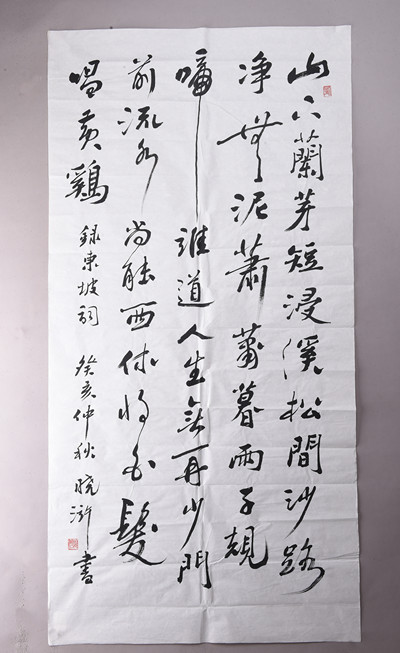 山下蘭芽短浸溪松間沙路
净無泥蕭蕭暮雨子規
啼誰道人生無再少門
前流水尚能西休將白髮
唱黄鷄 録東坡詞 癸亥仲秋 晓滸書